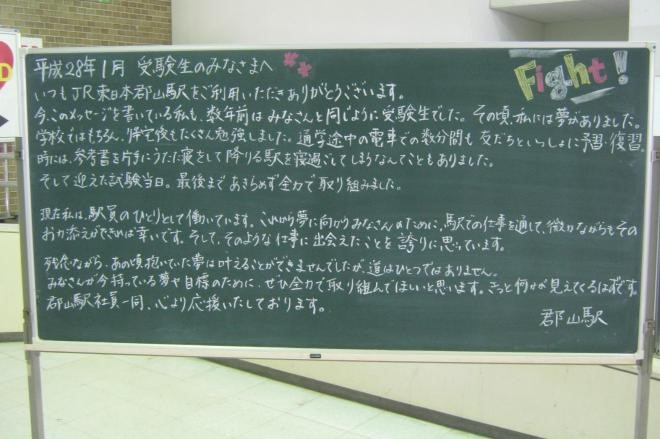 平成28年1月 受験生のみなさまへ
Fight!
いつもJR東日本郡山駅をご利用いただきありがとうございます。
今、このメッセージを書いている私も、数年前はみなさんと同じように受験生でした。その頃、私には夢がありました。
学校はもちろん、帰宅後もたくさん勉強しました。通学途中の電車での数分間も友だちといっしょに予習・復習。
時には、参考書を片手にうたた寝をして降りる駅を寝過ごしてしまうなんてこともありました。
そして迎えた試験当日。最後まであきらめず全力で取り組みました。
現在私は、駅員のひとりとして働いています。これから夢に向かうみなさんのために、駅での仕事を通して、微力ながらもその
お力添えができれば幸いです。そして、そのような仕事に出会えたことを誇りに思っています。
残念ながら、あの頃抱いていた夢は叶えることができませんでしたが、道はひとつではありません。
みなさんが今持っている夢や目標のために、ぜひ全力で取り組んでほしいと思います。きっと何かが見えてくるはずです。
郡山駅社員一同、心より応援いたしております。
郡山駅